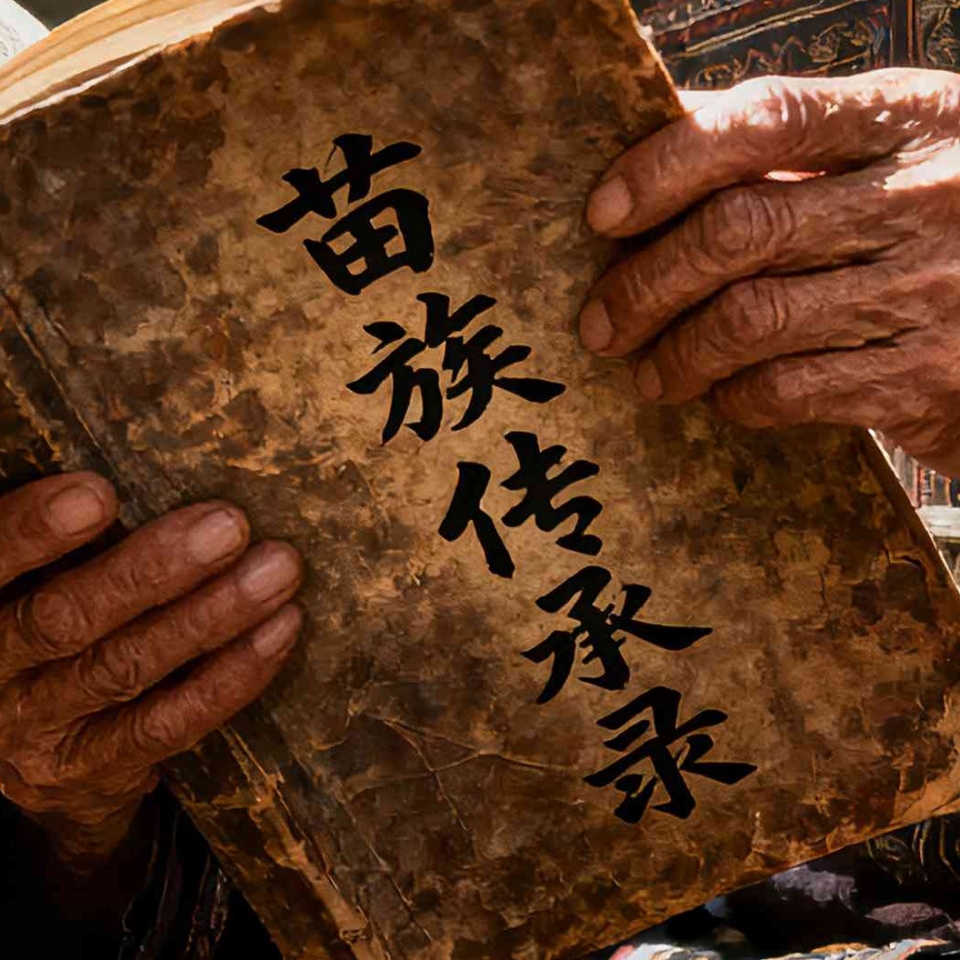 苗族传承录